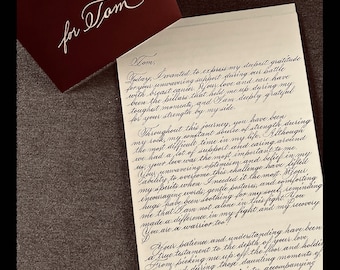 for Tom
Tom,
Today, I wanted to express my deepest gratitude
for your unwavering support during our battle
with breast cancer. Your love and care have
been the pillars that held me up during my
toughest moments, and I am deeply grateful
for your strength by my side.
Throughout this journey, you have been
my rock, my constant source of strength during
the most difficult time in my life. Although
we had a lot of support and caring around
us, your love was the most important to me.
Your unwavering optimism and belief in my
ability to overcome this challenge have lifted
my spirits when I needed it the most. Your
encouraging words, gentle gestures, and comforting
hugs have been soothing for my soul, reminding
me that I am not alone in this fight. You
made a difference in my fight and my recovery.
You are a warrior too!
Your patience and understanding have been
a true testament to the depth of your love.
From picking me up off the floor and holding
during those daunting moments of
accompanying